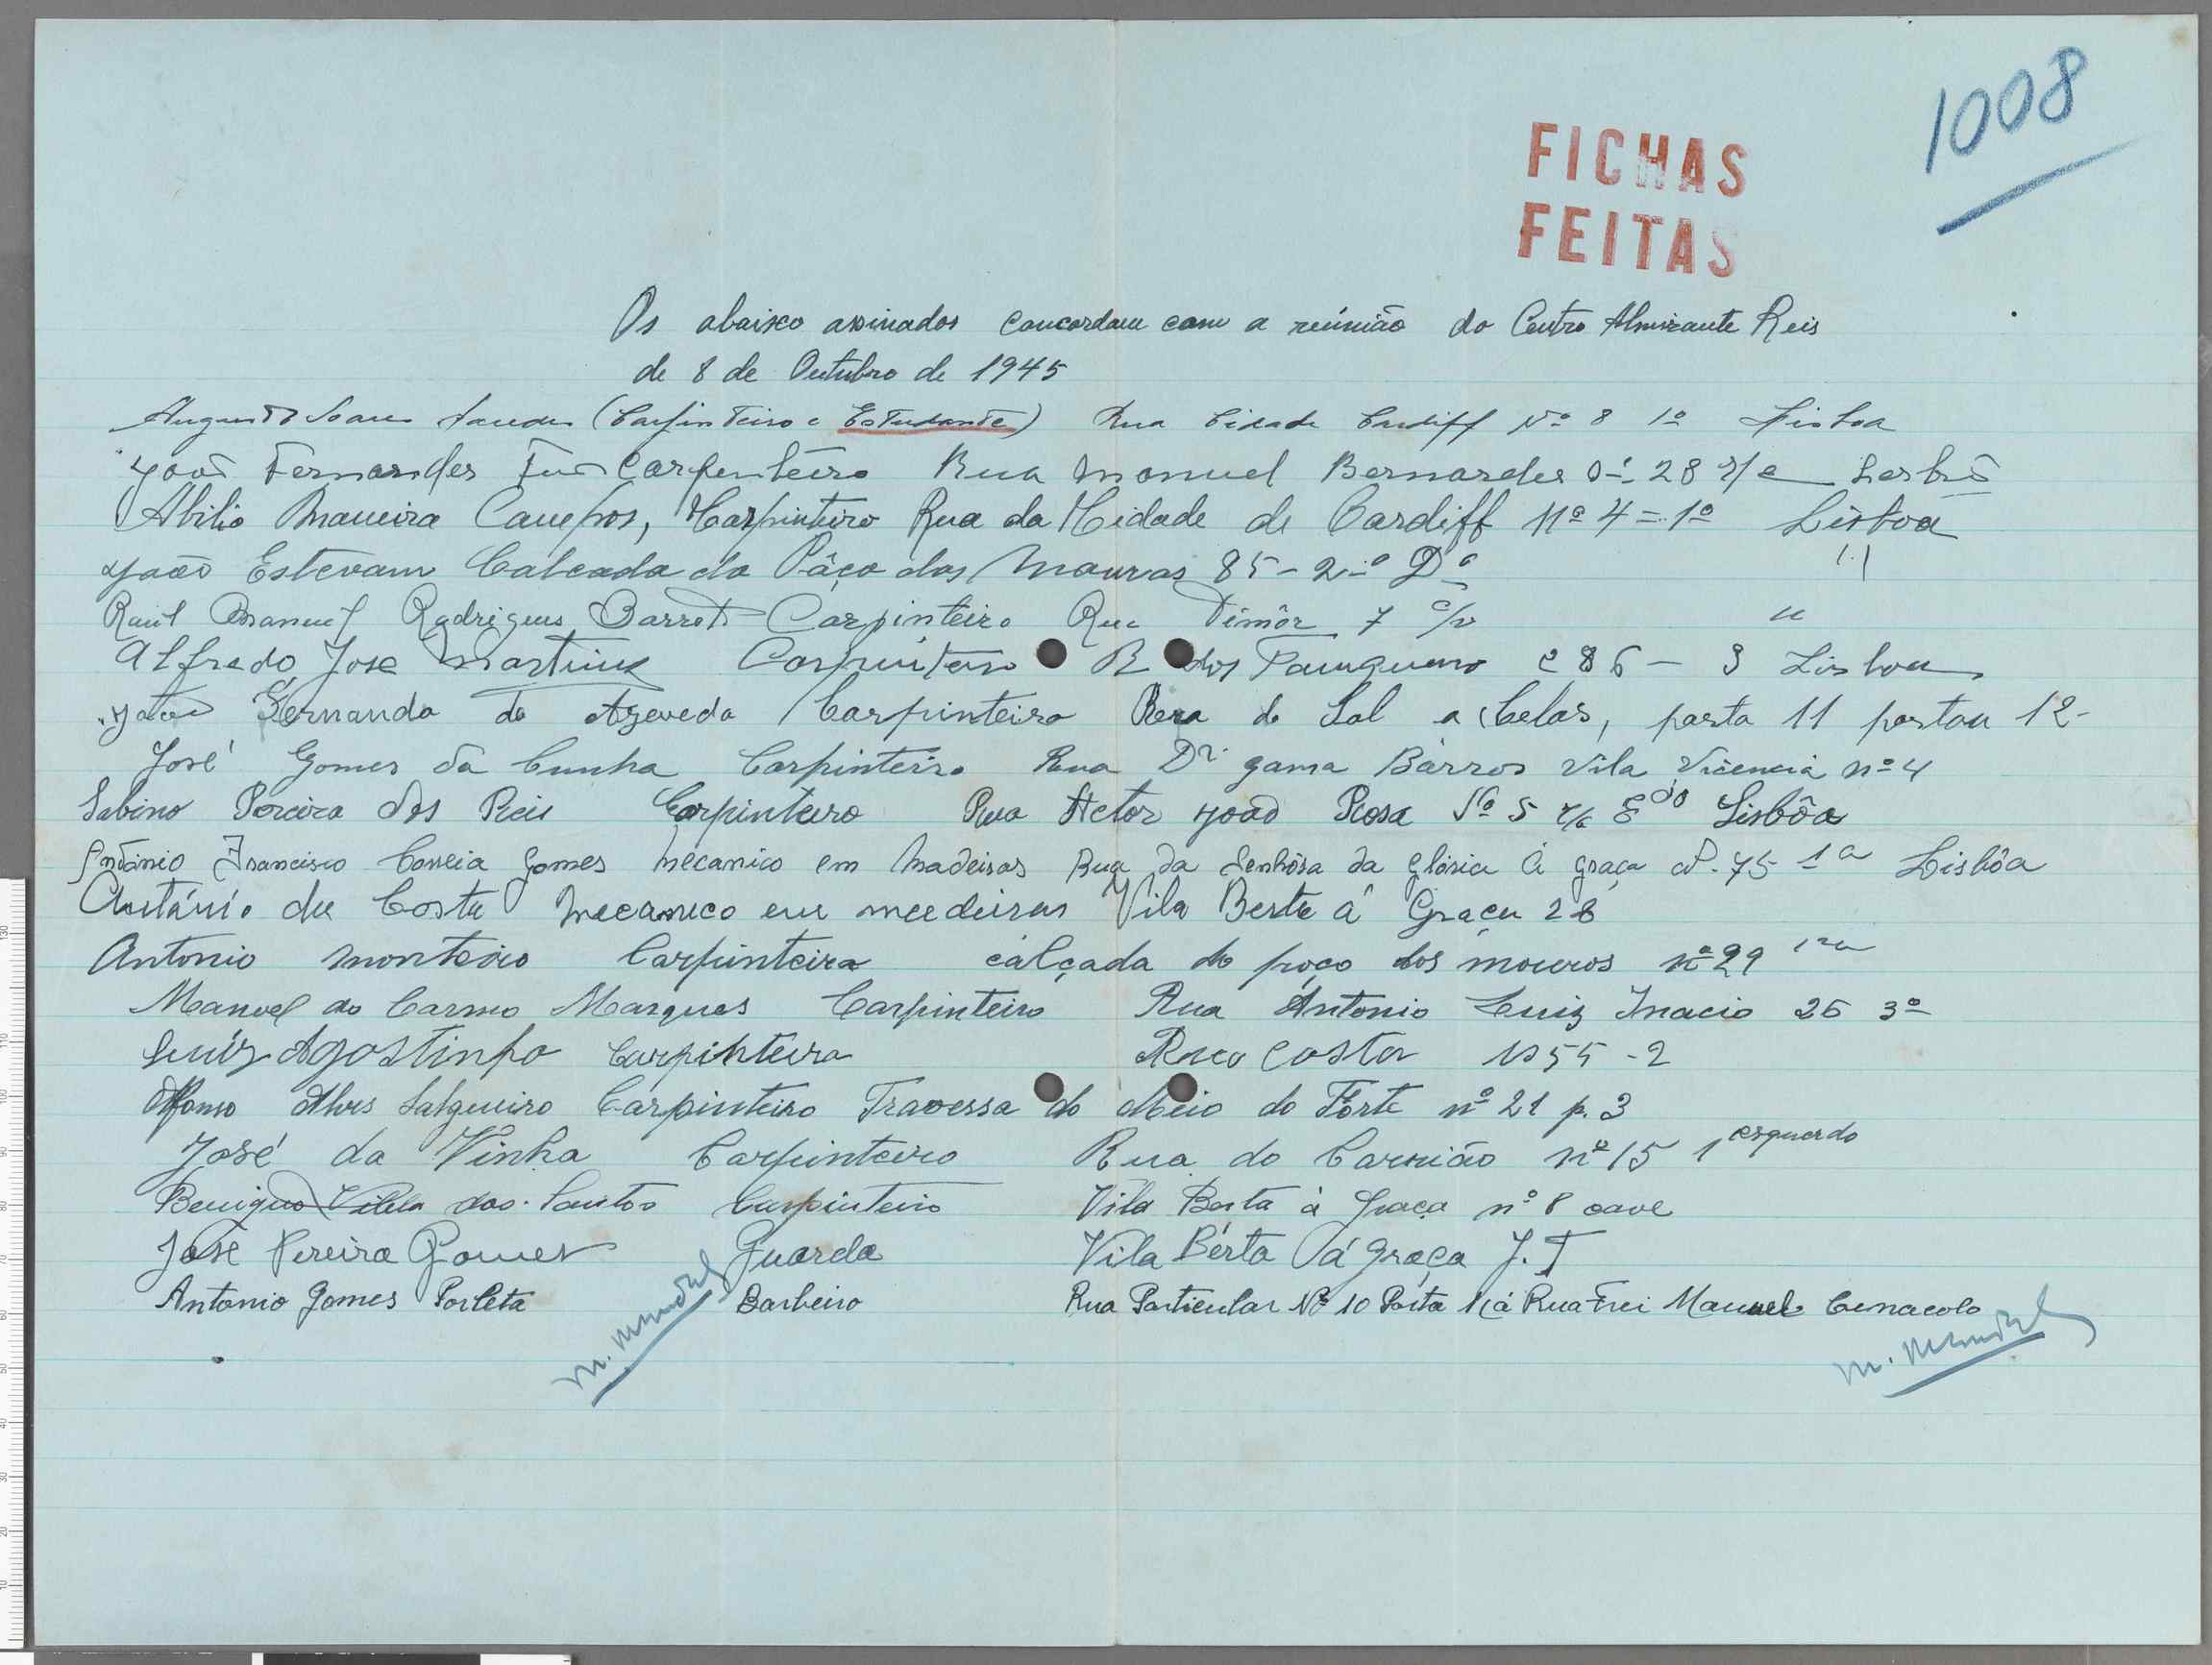 1008
FICHAS
FEITAS
Os abaixo assinados concordam com a reúnião do Centro Almirante Reis
de 8 de Outubro de 1945
Augusto Soares (Carpinteiro e Estudante) Rua Cidade Cardiff Nº 8 1º Lisboa
João Fernandes Carpenteiro Rua Manuel Bernardes 28 r/c Lesbô
Abilio Maneira Campos, Carpinteiro Rua da Cidade de Cardiff nº 4=1º Lisboa
João Estevam Calcada do Pâço dos Mouros 85-2º Dº "
Raúl Manuel Rodrigues Barreto Carpinteiro Rua Timôr 7 c/v "
Alfredo Jose Martins Carpinteiro R dos 286 - 3 Lisboa
João Fernando de Azevedo Carpinteiro Rua do Sol a Chelas, porta 11 12-
José Gomes da Cunha Carpinteiro Rua Dr. gama Bárros Vila Vicencia nº 4
Sabino Pereira dos Reis Carpinteiro Rua Actor João Rosa Nº 5 r/c Edo Lisbôa
António Francisco Correia Gomes Mecanico em Madeiras Rua da Senhôra da Glória á graça nº. 75-1º Lisbôa
António da Costa Mecanico em madeiras Vila Berta á Graça 28
Antonio monteiro Carpinteiro calçada do poço dos mouros nº 29
Manuel do Carmo Marques Carpinteiro Rua Antonio Luiz Inacio 26 3º
Luiz Agostinho Carpinteiro Costa 55-2
Afonso Alves Salgueiro Carpinteiro Travessa do Meio do Forte nº 21 p. 3
José da Vinha Carpinteiro Rua do Carrião nº 15 1 esquerdo
Benigno Vilela dos Santos Carpinteiro Vila Berta à Graça nº 8 cave
José Pereira Gomes Guarda Vila Bérta á Graça J. T
Antonio Gomes Porleta Barbeiro Rua Particular Nº 10 Porta 1 (á Rua Frei Manuel Cenacolo